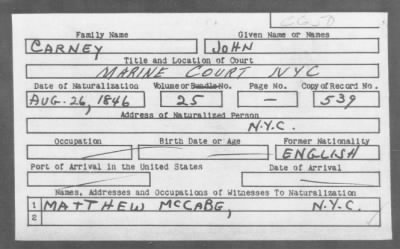 Family Name Given Name or Names
CARNEY JOHN
Title and Location of Court
MARINE COURT NYC
Date of Naturalization Volume or Bundle No. Page No. Copy of Record No.
AUG. 26, 1846 25 — 539
Address of Naturalized Person
N.Y.C.
Occupation Birth Date or Age Former Nationality
ENGLISH
Port of Arrival in the United States Date of Arrival
Names, Addresses and Occupations of Witnesses To Naturalization
1 MATTHEW MCCABE, N.Y.C.
2